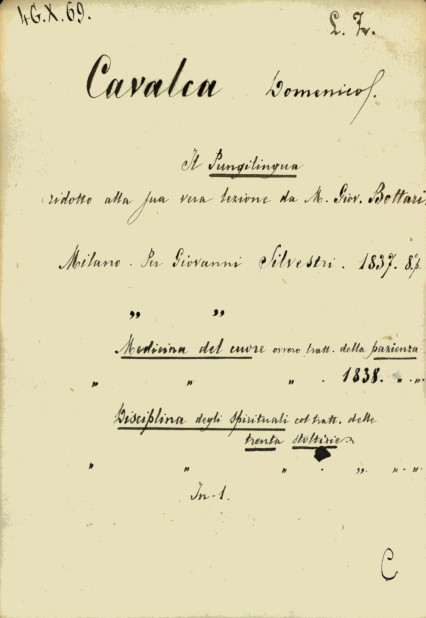 4G.X.69.
L. Fr.
Cavalca Domenico.
Il Pungilingua
ridotto alla sua vera lezione da M. Giov. Bottari.
Milano. Per Giovanni Silvestri. 1837. 8º.
" "
Medicina del cuore ovvero tratt. della pazienza.
" " " . 1838. ". ".
Disciplina degli Spirituali col tratt. delle
trenta stoltizie.
" " " . ". ". ".
In-1.
C